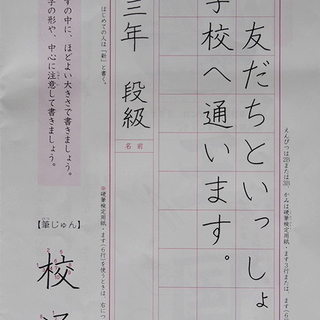 えんぴつは2Bまたは3B、かみは硬筆検定用紙・ます3行または、ます(6
友だちといっしょ
学校へ通います。
はじめての人は「新」と書く。
三年 段級
名前
※硬筆検定用紙・ます(6行)を使うときは、右につ
すの中に、ほどよい大きさで書きましょう。
字の形や、中心に注意して書きましょう。
【筆じゅん】
校
通